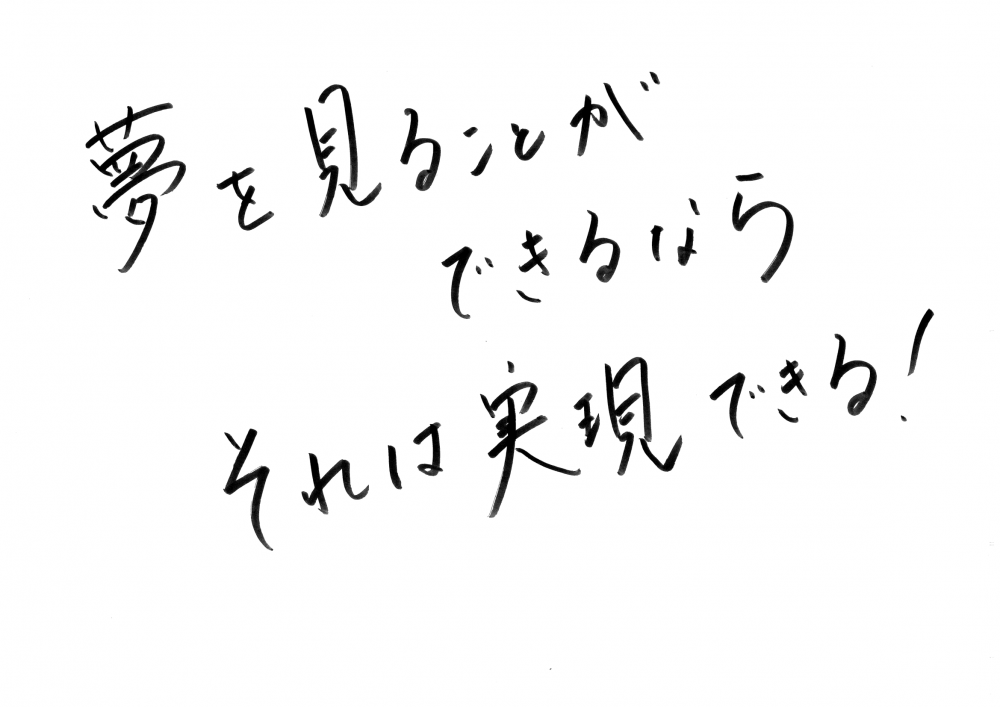 夢を見ることが
できるなら
それは実現できる!